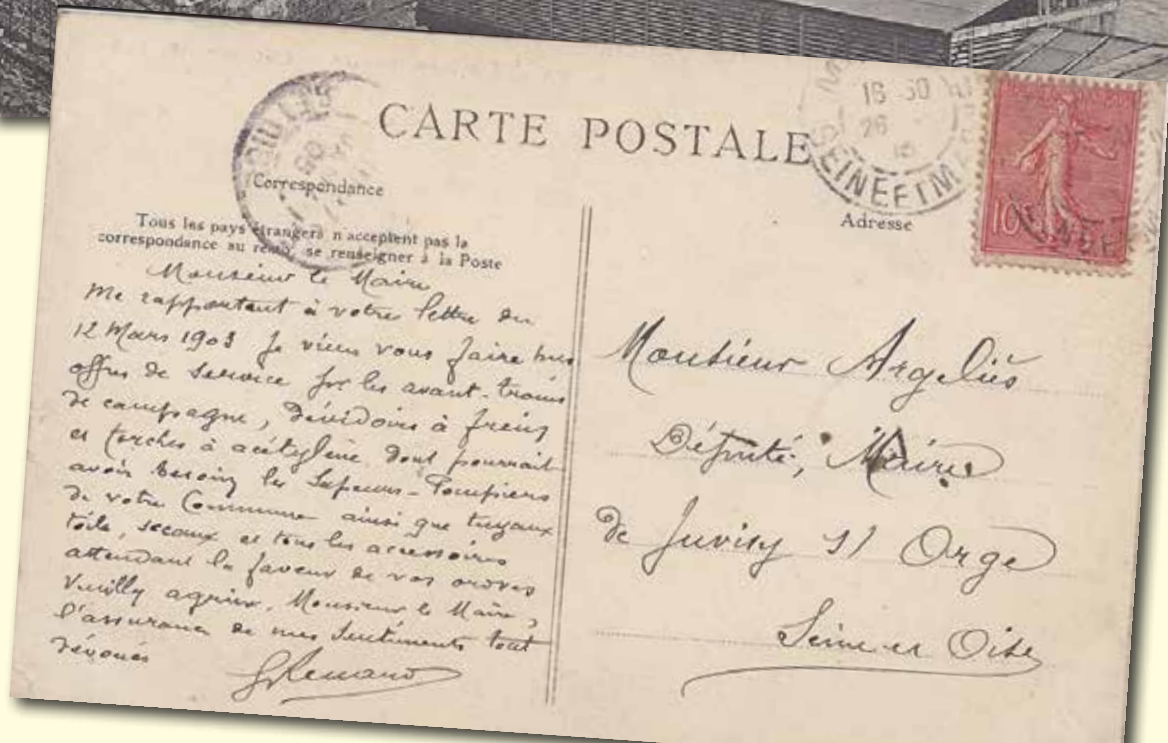 CARTE POSTALE
Correspondance
Tous les pays étrangers n'acceptent pas la
correspondance au recto, se renseigner à la Poste
Monsieur le Maire
Me rapportant à votre lettre du
12 Mars 1903 je viens vous faire mes
offres de service pr les avant-trains
de campagne, dévidoirs à freins
et torches à acétylène dont pourrait
avoir besoin les Sapeurs-Pompiers
de votre Commune ainsi que tuyaux
toile, seceaux et tous les accessoires
attendant la faveur de vos ordres
Veuilly agréer, Monsieur le Maire,
l'assurance de mes Sentiments tout
dévoués
16 30
26
SEINE ET M
10
Adresse
Monsieur Argeliès
Député, Maire
de Juvisy s/ Orge
Seine et Oise